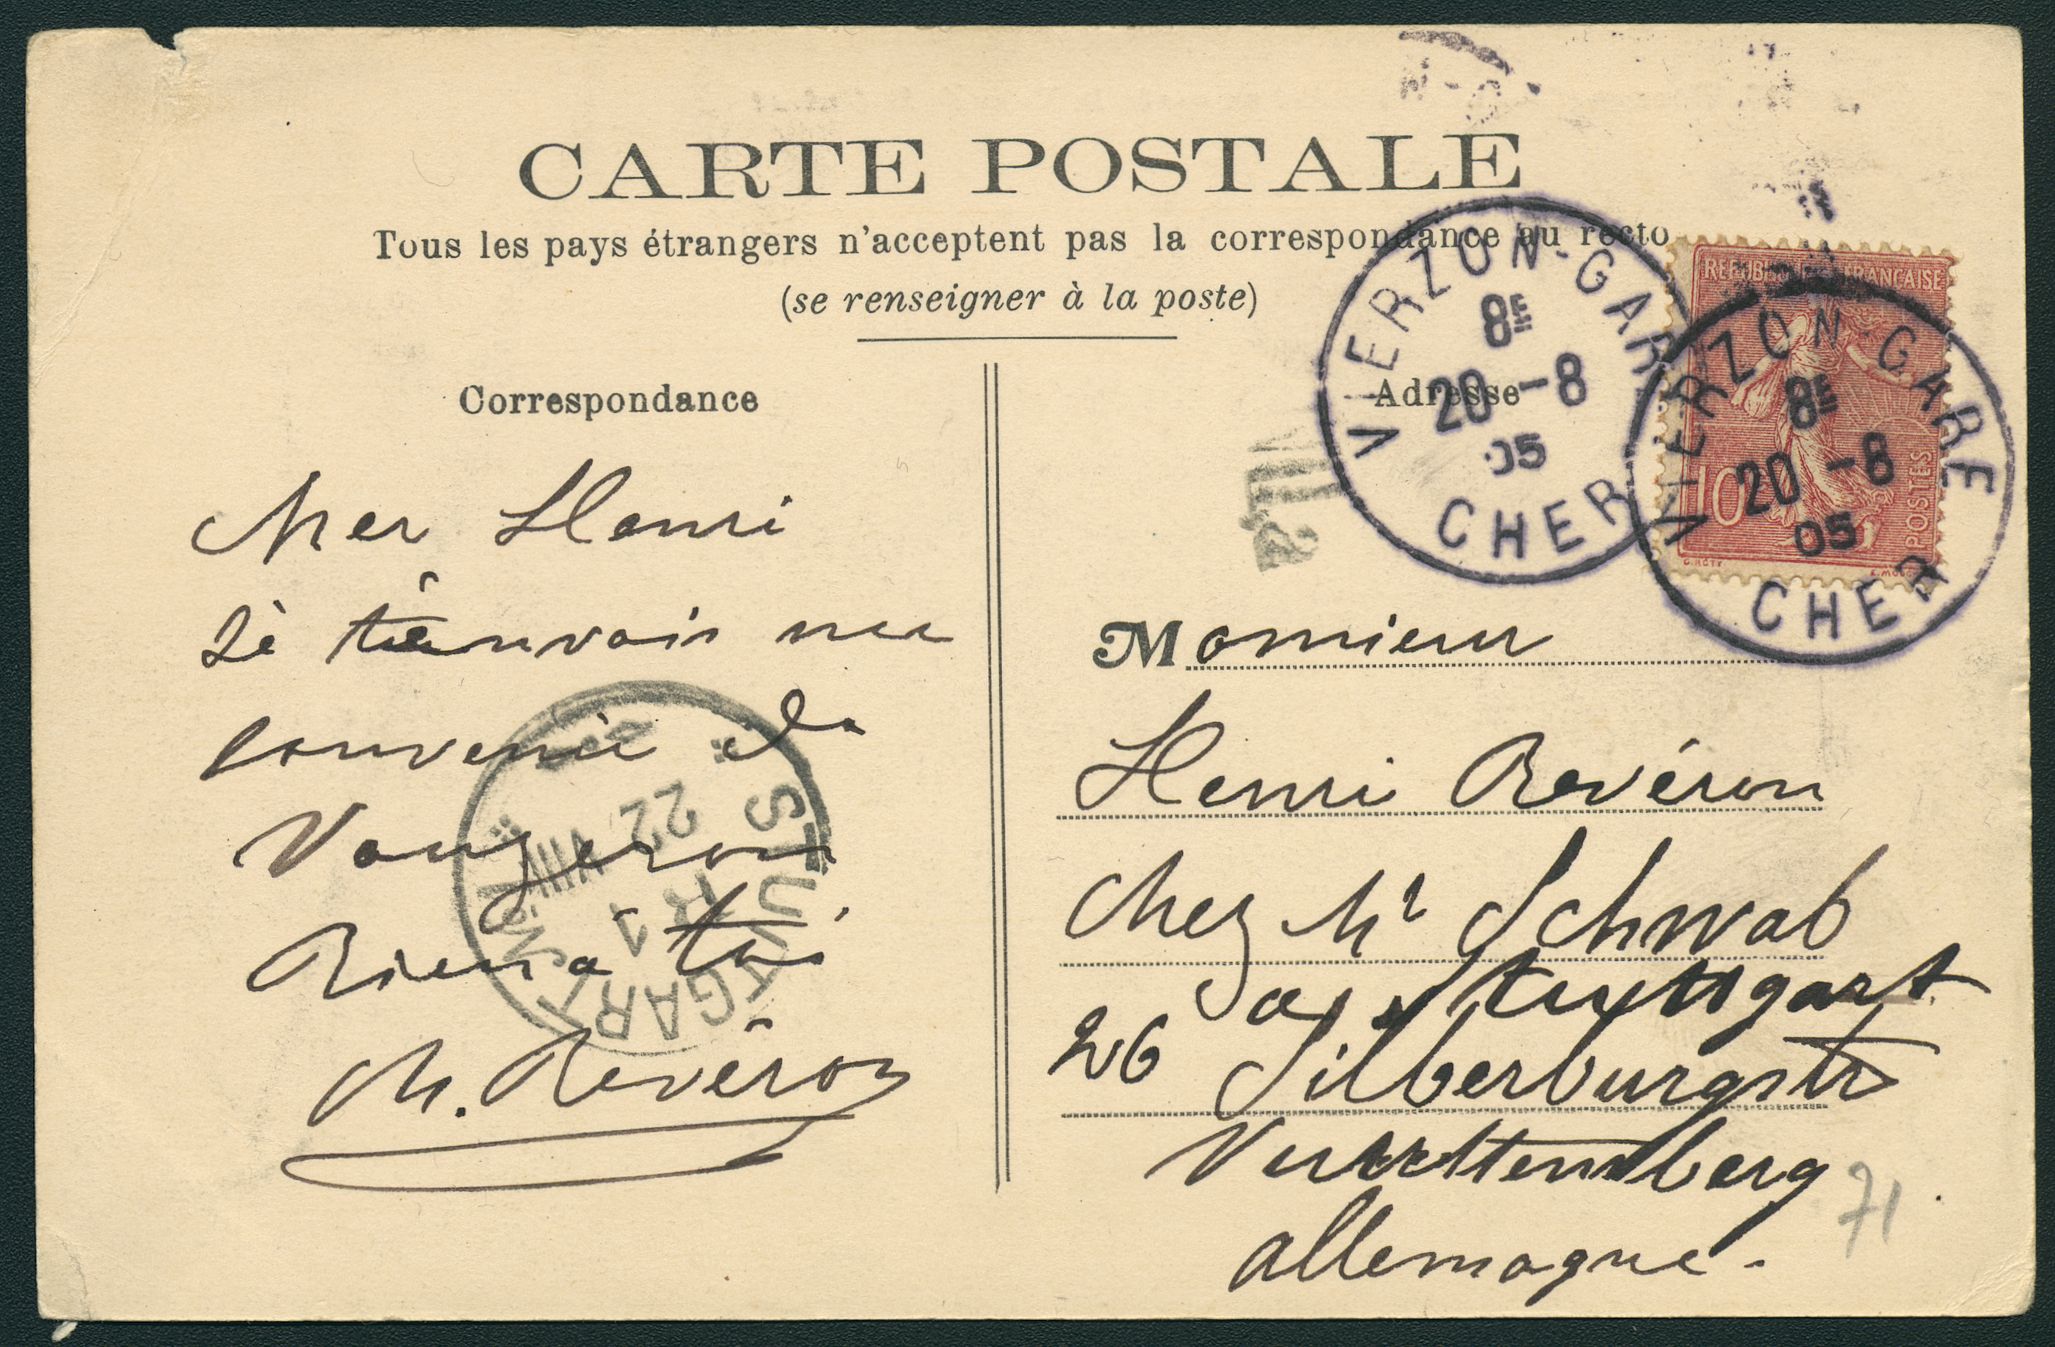 CARTE POSTALE
Tous les pays étrangers n'acceptent pas la correspondance au recto
(se renseigner à la poste)
Correspondance
Cher Henri
Je t'envoir un
souvenir de
Vouzeron
Rien a toi
M. Revéron
Adresse
Monsieur
Henri Revéron
Chez Mr Schwab
a Stuttgart
26 Silberburgstr
Wurttemberg
allemagne.
71
VIERZON-GARE
8E
20 -8
05
CHER
VIERZON-GARE
8E
20 -8
05
CHER
REPUBLIQUE FRANÇAISE
10
POSTES
STUTTGART
22 VIII
1